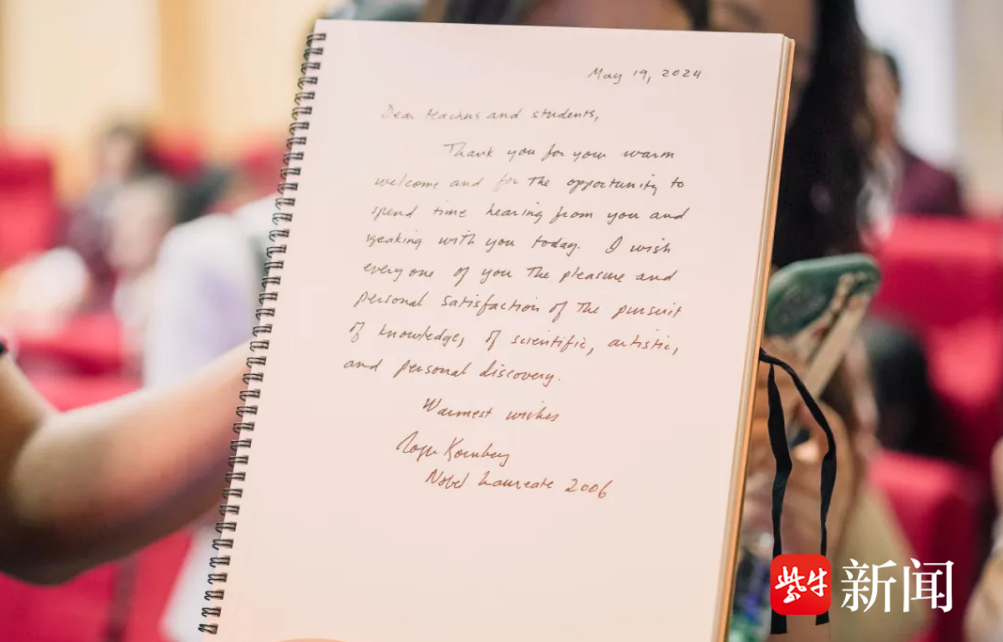 May 19, 2024
Dear teachers and students,
Thank you for your warm
welcome and for the opportunity to
spend time hearing from you and
speaking with you today. I wish
everyone of you the pleasure and
personal satisfaction of the pursuit
of knowledge, of scientific, artistic,
and personal discovery.
Warmest wishes
Roger Kornberg
Nobel Laureate 2006
紫牛 新闻